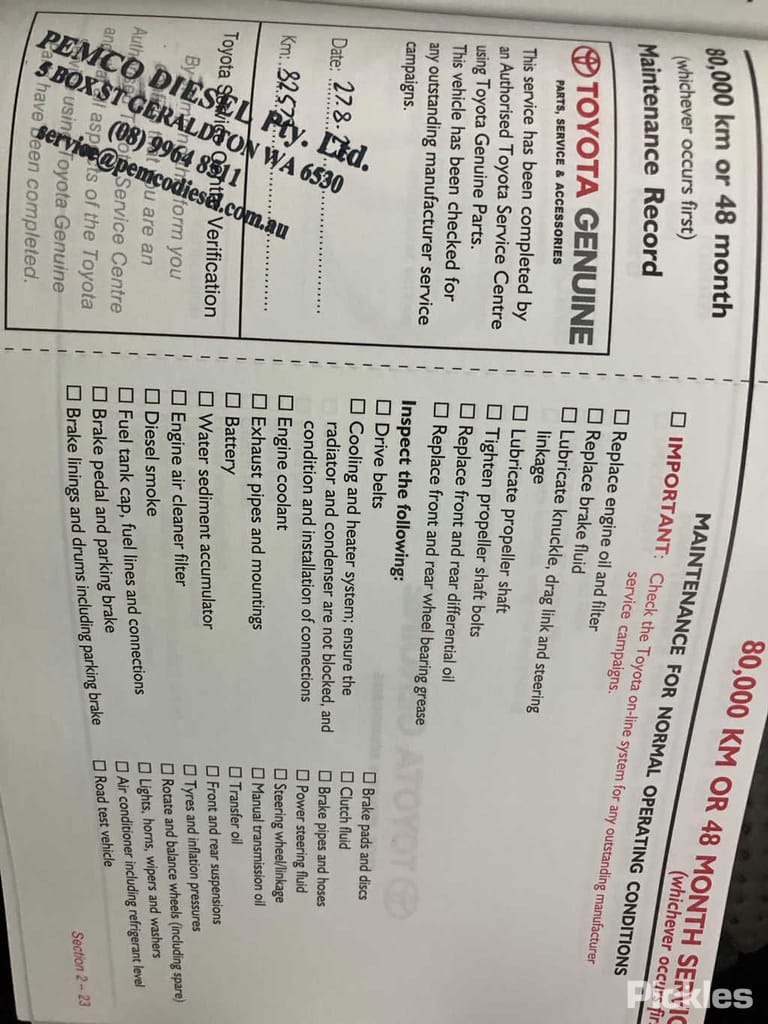 80,000 km or 48 month
(whichever occurs first)
Maintenance Record
TOYOTA GENUINE
PARTS, SERVICE & ACCESSORIES
This service has been completed by
an Authorised Toyota Service Centre
using Toyota Genuine Parts.
This vehicle has been checked for
any outstanding manufacturer service
campaigns.
Date: 27.8.
Km: 8252
Toyota Service Centre Verification
PEMCO DIESEL Pty. Ltd.
5 BOX ST GERALDTON WA 6530
(08) 9964 8511
service@pemcodiesel.com.au
form you
you are an
Service Centre
aspects of the Toyota
using Toyota Genuine
have been completed.
80,000 KM OR 48 MONTH SERVIC
(whichever occurs fir
MAINTENANCE FOR NORMAL OPERATING CONDITIONS
☐ IMPORTANT: Check the Toyota on-line system for any outstanding manufacturer
service campaigns.
☐ Replace engine oil and filter
☐ Replace brake fluid
☐ Lubricate knuckle, drag link and steering
linkage
☐ Lubricate propeller shaft
☐ Tighten propeller shaft bolts
☐ Replace front and rear differential oil
☐ Replace front and rear wheel bearing grease
Inspect the following:
☐ Drive belts
☐ Cooling and heater system; ensure the
radiator and condenser are not blocked, and
condition and installation of connections
☐ Engine coolant
☐ Exhaust pipes and mountings
☐ Battery
☐ Water sediment accumulator
☐ Engine air cleaner filter
☐ Diesel smoke
☐ Fuel tank cap, fuel lines and connections
☐ Brake pedal and parking brake
☐ Brake linings and drums including parking brake
☐ Brake pads and discs
☐ Clutch fluid
☐ Brake pipes and hoses
☐ Power steering fluid
☐ Steering wheel/linkage
☐ Manual transmission oil
☐ Transfer oil
☐ Front and rear suspensions
☐ Tyres and inflation pressures
☐ Rotate and balance wheels (including spare)
☐ Lights, horns, wipers and washers
☐ Air conditioner including refrigerant level
☐ Road test vehicle
Section 2 – 23
Pickles